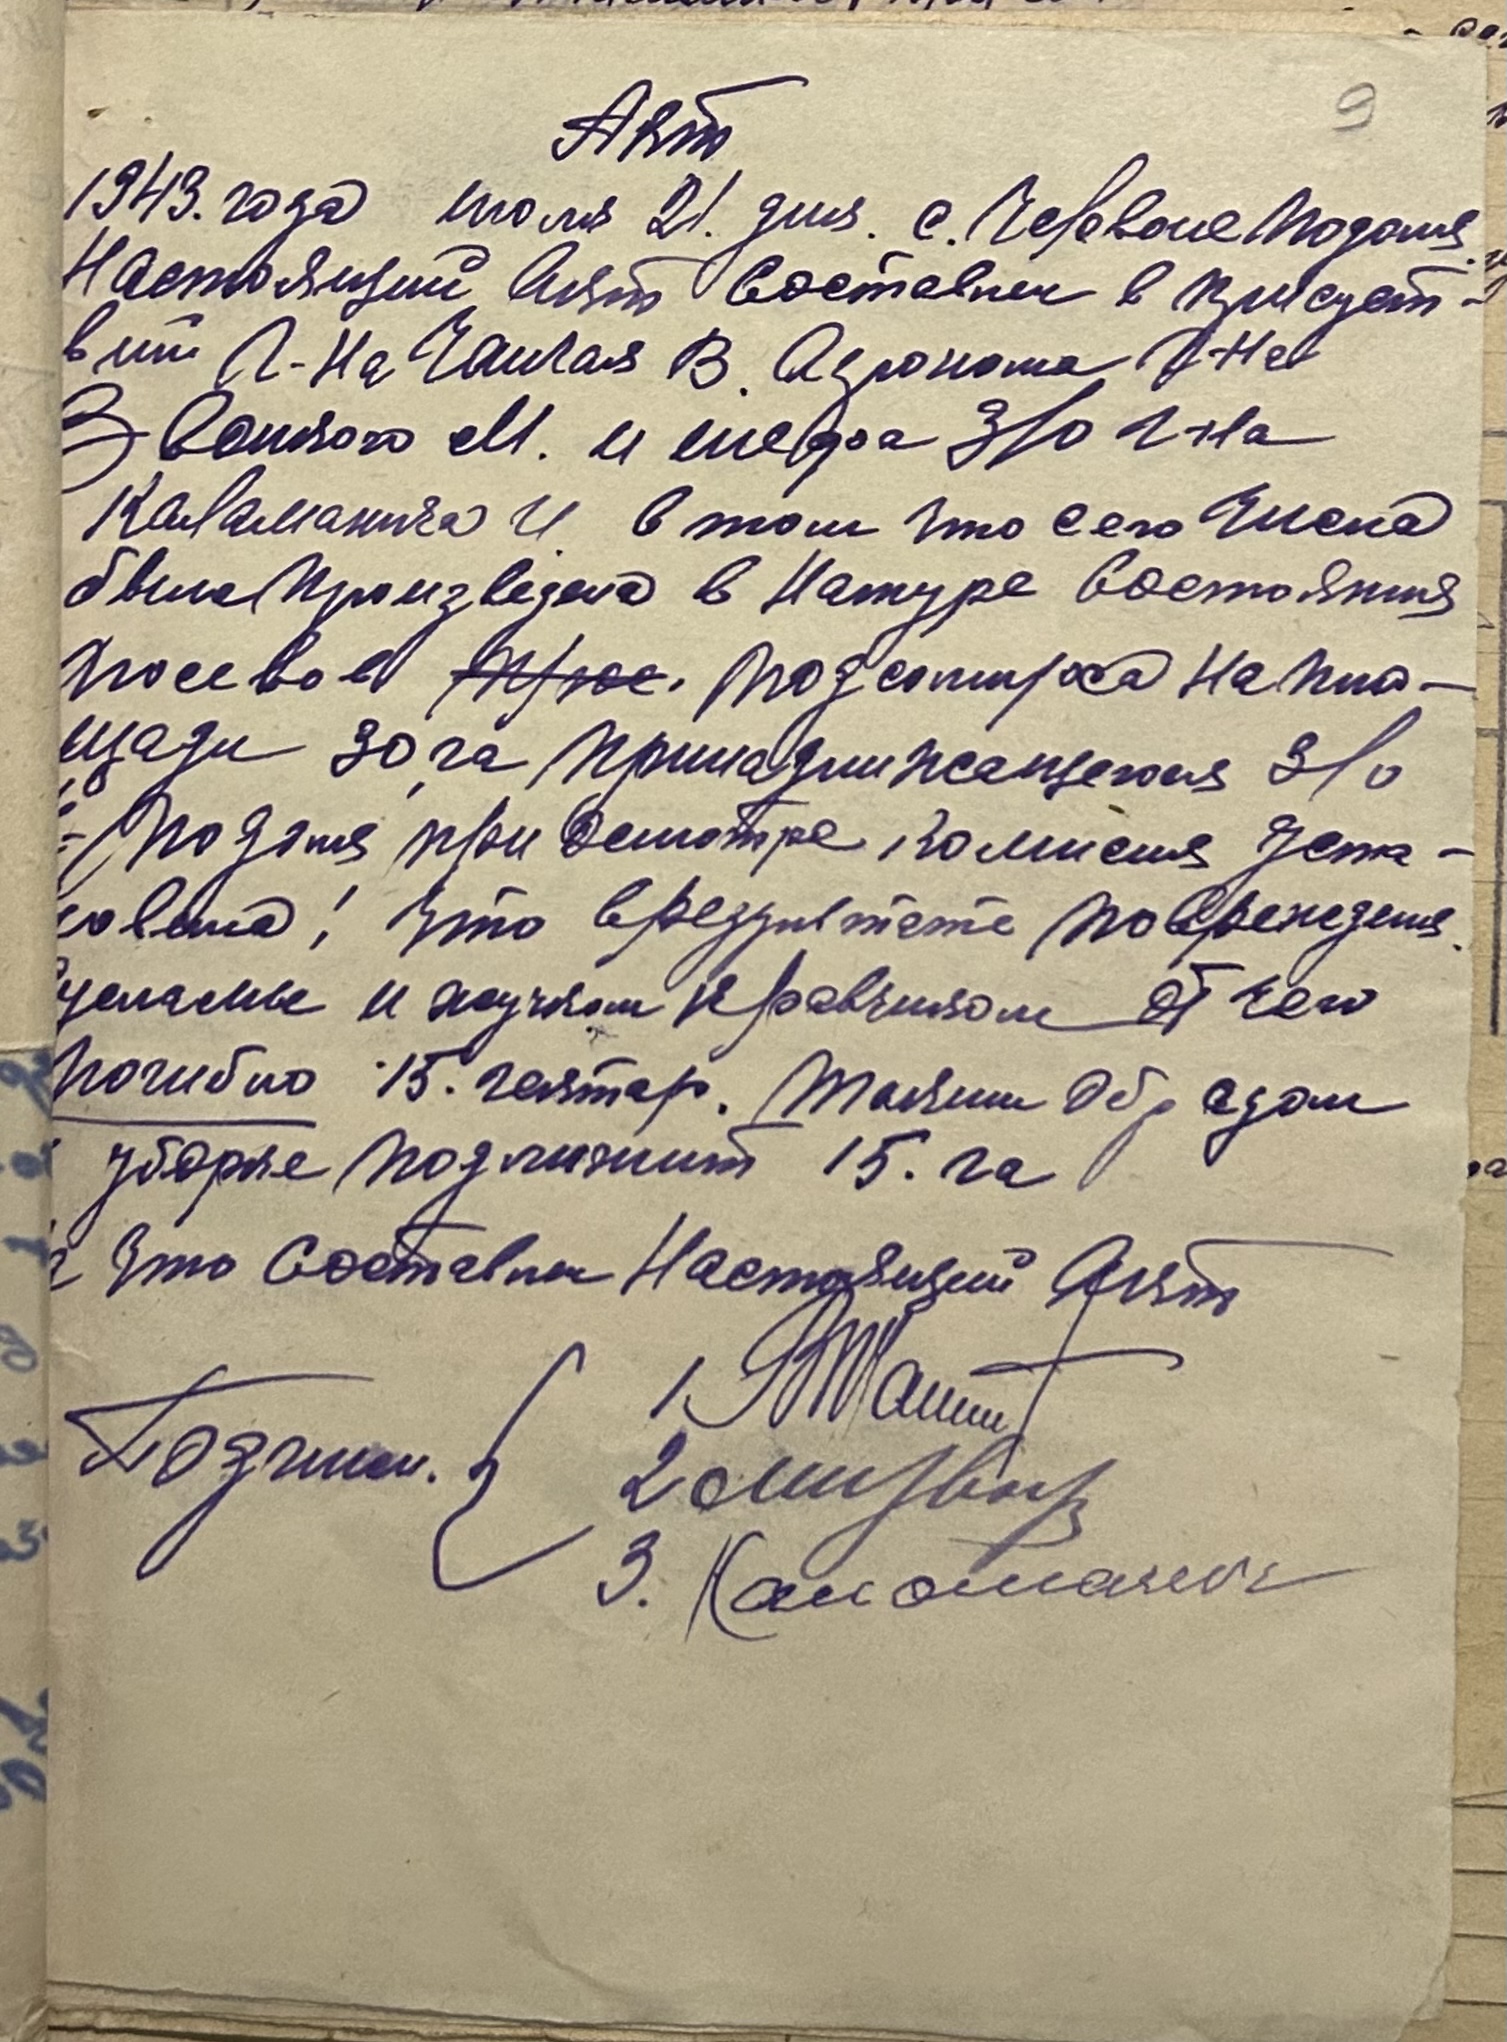 9
Акт
1943. года июля 21. дня. с. Червоне Подоля.
Настоящий Акт Составлен в присуст-
вии Г-на В. Агронома Г-на
М. и шефа З/о Г-на
Каламанича И. в том что сего числа
была Произведена в Натуре Состояния
Посевов Подсолнуха На пло-
щади 30 га Принадлижащегося З/о
Подоля при Осмотре Комисия Уста-
новила! Что в результате поврежденя
и жучком Кравчиком от чего
Погибло 15. гектар. Таким Образом
уборке подлижит 15. га
что Составлен Настоящий Акт
Подписи. 1.
2
3. Каломанич